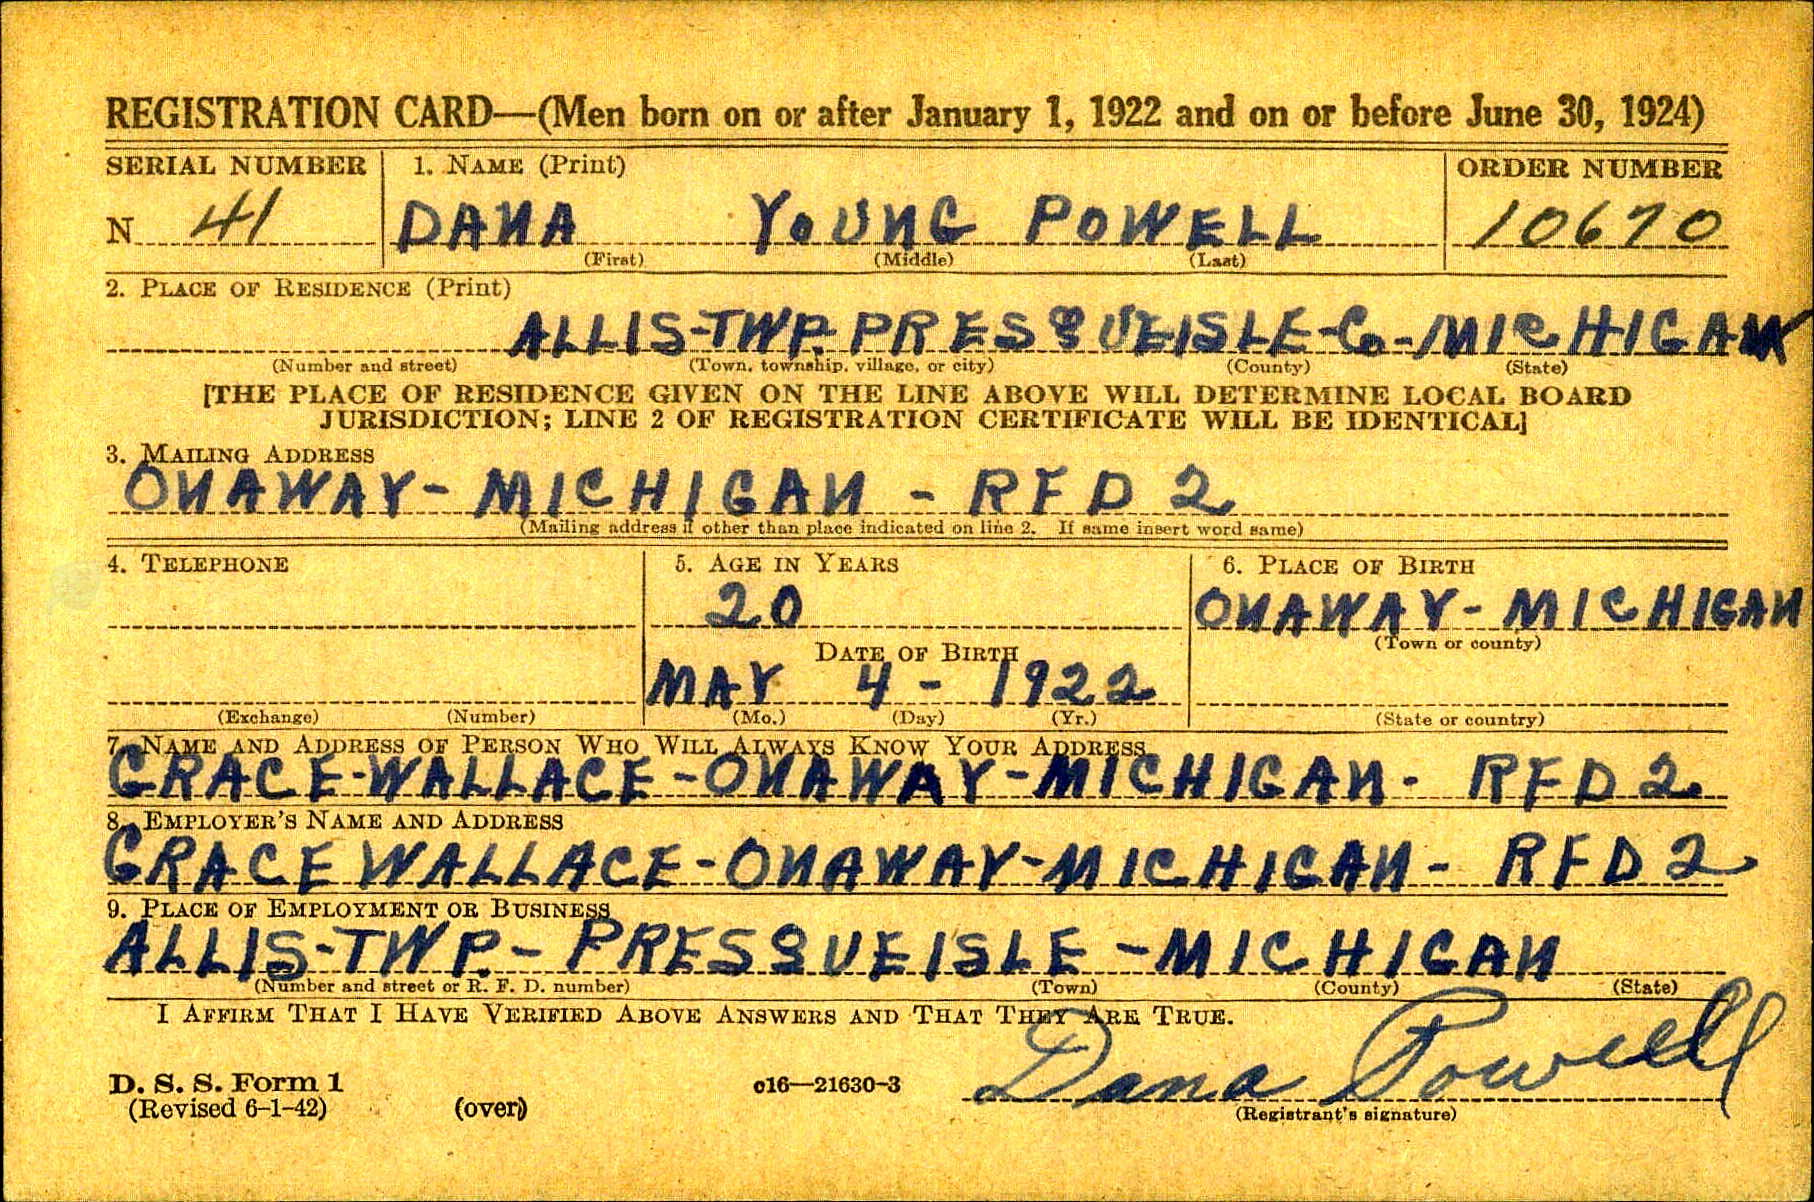 REGISTRATION CARD—(Men born on or after January 1, 1922 and on or before June 30, 1924)
SERIAL NUMBER 1. NAME (Print) ORDER NUMBER
N 41 DANA YOUNG POWELL 10670
(First) (Middle) (Last)
2. PLACE OF RESIDENCE (Print)
ALLIS-TWP. PRESQUEISLE-Co-MICHIGAN
(Number and street) (Town, township, village, or city) (County) (State)
[THE PLACE OF RESIDENCE GIVEN ON THE LINE ABOVE WILL DETERMINE LOCAL BOARD
JURISDICTION; LINE 2 OF REGISTRATION CERTIFICATE WILL BE IDENTICAL]
3. MAILING ADDRESS
ONAWAY-MICHIGAN - RFD 2
(Mailing address if other than place indicated on line 2. If same insert word same)
4. TELEPHONE 5. AGE IN YEARS 6. PLACE OF BIRTH
20 ONAWAY-MICHIGAN
DATE OF BIRTH (Town or county)
MAY 4 - 1922
(Exchange) (Number) (Mo.) (Day) (Yr.) (State or country)
7. NAME AND ADDRESS OF PERSON WHO WILL ALWAYS KNOW YOUR ADDRESS
GRACE-WALLACE-ONAWAY-MICHIGAN- RFD 2
8. EMPLOYER'S NAME AND ADDRESS
GRACE WALLACE-ONAWAY-MICHIGAN- RFD 2
9. PLACE OF EMPLOYMENT OR BUSINESS
ALLIS-TWP.- PRESQUEISLE -MICHIGAN
(Number and street or R. F. D. number) (Town) (County) (State)
I AFFIRM THAT I HAVE VERIFIED ABOVE ANSWERS AND THAT THEY ARE TRUE.
Dana Powell
D. S. S. Form 1 c16—21630-3
(Revised 6-1-42) (over) (Registrant's signature)